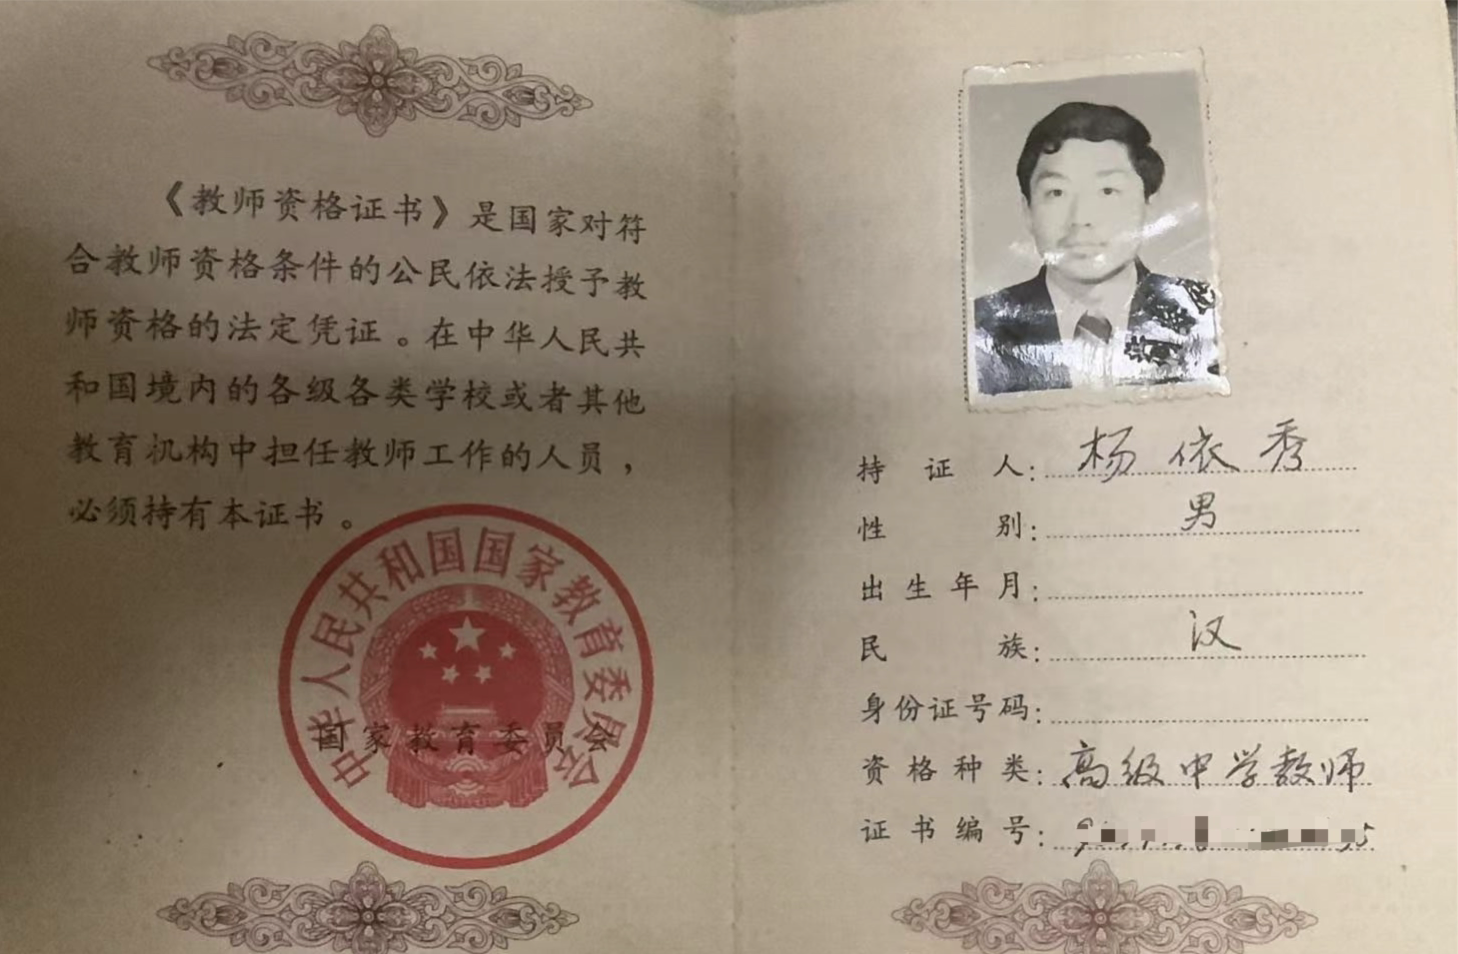 《教师资格证书》是国家对符
合教师资格条件的公民依法授予教
师资格的法定凭证。在中华人民共
和国境内的各级各类学校或者其他
教育机构中担任教师工作的人员，
必须持有本证书。
中华人民共和国国家教育委员会
国家教育委员会
持证人：杨依秀
性别：男
出生年月：
民族：汉
身份证号码：
资格种类：高级中学教师
证书编号：